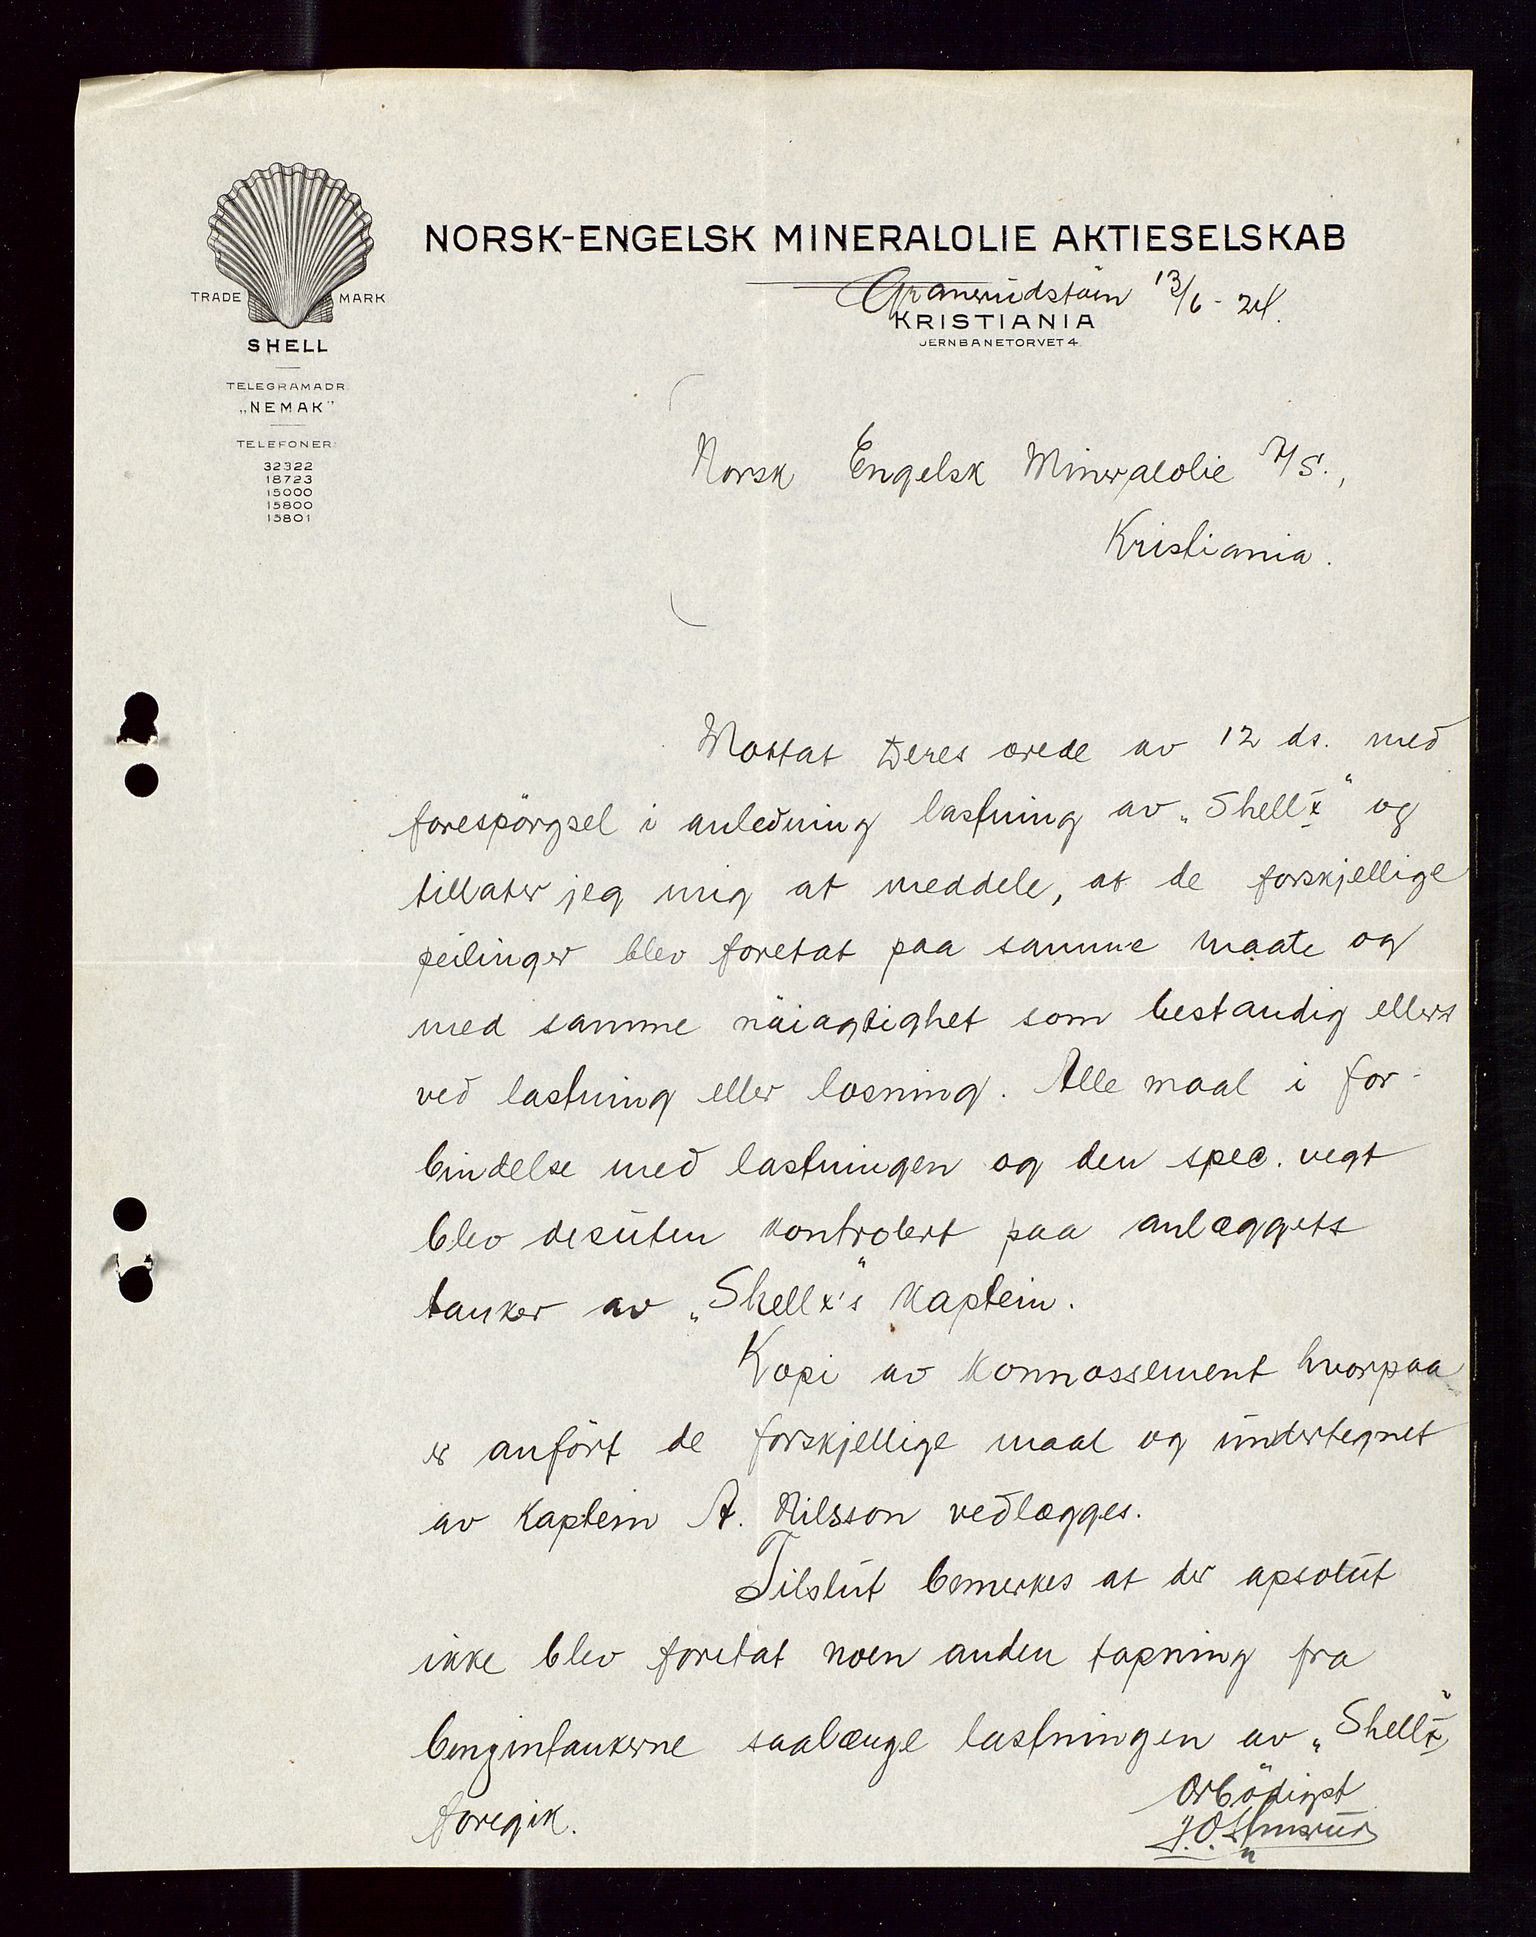 NORSK-ENGELSK MINERALOLIE AKTIESELSKAB
Granerudstöen 13/6 - 24.
KRISTIANIA
JERNBANETORVET 4.
TRADE MARK
SHELL
TELEGRAMADR.
„NEMAK"
TELEFONER:
32322
18723
15000
15800
15801
Norsk Engelsk Mineralolie A/S.,
Kristiania.
Mottat Deres ærede av 12 ds. med
forespörgsel i anledning lastning av „Shell x" og
tillater jeg mig at meddele, at de forskjellige
peilinger blev foretat paa samme maate og
med samme nöiagtighet som bestandig ellers
ved lastning eller losning. Alle maal i for-
bindelse med lastningen og den spec. vegt
blev desuten kontrolert paa anlæggets
tanker av „Shell x's" kaptein.
Kopi av konnossement hvorpaa
er anfört de forskjellige maal og undertegnet
av kaptein A. Nilsson vedlægges.
Tilslut bemerkes at der apsolut
ikke blev foretat noen anden tapning fra
benzintankerne saalænge lastningen av „Shell x"
foregik.
Ærbödigst